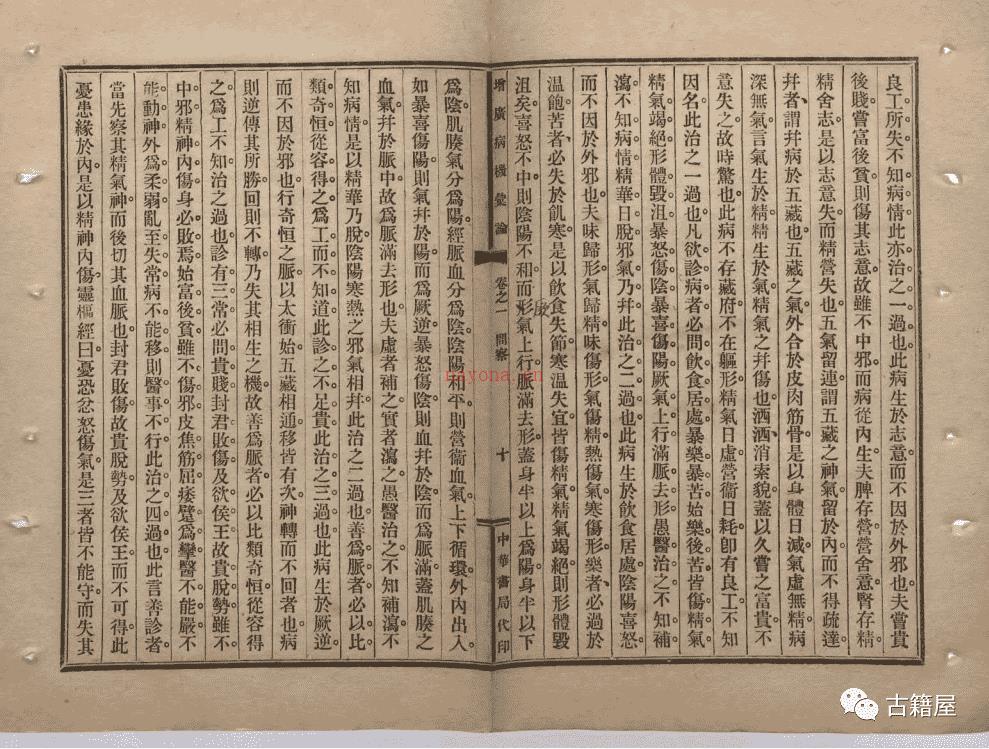 良工所失不知病情此亦治之一過也此病生於志意而不因於外邪也夫嘗貴
後賤嘗富後貧則傷其志意故雖不中邪而病從內生夫脾存營營舍意腎存精
精舍志是以志意失而精營失也五氣留連謂五藏之神氣留於內而不得疏達
幷者謂幷病於五藏也五藏之氣外合於皮肉筋骨是以身體日減氣虛無精病
深無氣言氣生於精精生於氣精氣之幷傷也洒洒消索貌蓋以久嘗之富貴不
意失之故時驚也此病不存藏府不在軀形精氣日虛營衞日耗卽有良工不知
因名此治之一過也凡欲診病者必問飲食居處暴樂暴苦始樂後苦皆傷精氣
精氣竭絕形體毀沮暴怒傷陰暴喜傷陽厥氣上行滿脈去形愚醫治之不知補
瀉不知病情精華日脫邪氣乃幷此治之二過也此病生於飲食居處陰陽喜怒
而不因於外邪也夫味歸形氣歸精味傷形氣傷精熱傷氣寒傷形樂者必過於
溫飽苦者必失於飢寒是以飲食失節寒溫失宜皆傷精氣精氣竭絕則形體毀
沮矣喜怒不中則陰陽不和而形氣上行脈滿去形蓋身半以上爲陽身半以下
增廣病機彙論 卷之一 問察 十 中華書局代印
爲陰肌腠氣分爲陽經脈血分爲陰陰陽和平則營衞血氣上下循環外內出入
如暴喜傷陽則氣幷於陽而爲厥逆暴怒傷陰則血幷於陰而爲脈滿蓋肌腠之
血氣幷於脈中故爲脈滿去形也夫虛者補之實者瀉之愚醫治之不知補瀉不
知病情是以精華乃脫陰陽寒熱之邪氣相幷此治之二過也善爲脈者必以比
類奇恒從容得之爲工而不知道此診之不足貴此治之三過也此病生於厥逆
而不因於邪也行奇恒之脈以太衝始五藏相通移皆有次神轉而不回者也病
則逆傳其所勝回則不轉乃失其相生之機故善爲脈者必以比類奇恒從容得
之爲工不知治之過也診有三常必問貴賤封君敗傷及欲侯王故貴脫勢雖不
中邪精神內傷身必敗焉始富後貧雖不傷邪皮焦筋屈痿躄爲攣醫不能嚴不
能動神外爲柔弱亂至失常病不能移則醫事不行此治之四過也此言善診者
當先察其精氣神而後切其血脈也封君敗傷故貴脫勢及欲侯王而不可得此
憂患緣於內是以精神內傷靈樞經曰憂恐忿怒傷氣是三者皆不能守而失其
nayona.cn
古籍屋